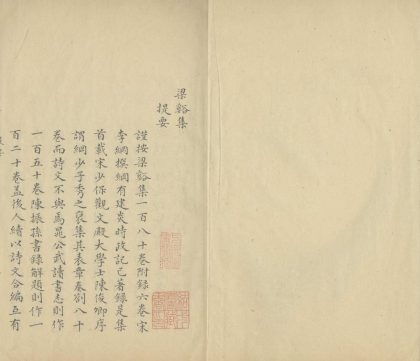 梁谿集
提要
謹按梁谿集一百八十卷附錄六卷宋
李綱撰綱有建炎時政記已著錄是集
首載宋少保觀文殿大學士陳俊卿序
謂綱少子秀之裒集其表章奏劄八十
卷而詩文不與焉晁公武讀書志則作
一百五十卷陳振孫書錄解題則作一
百二十卷蓋後人續以詩文合編互有